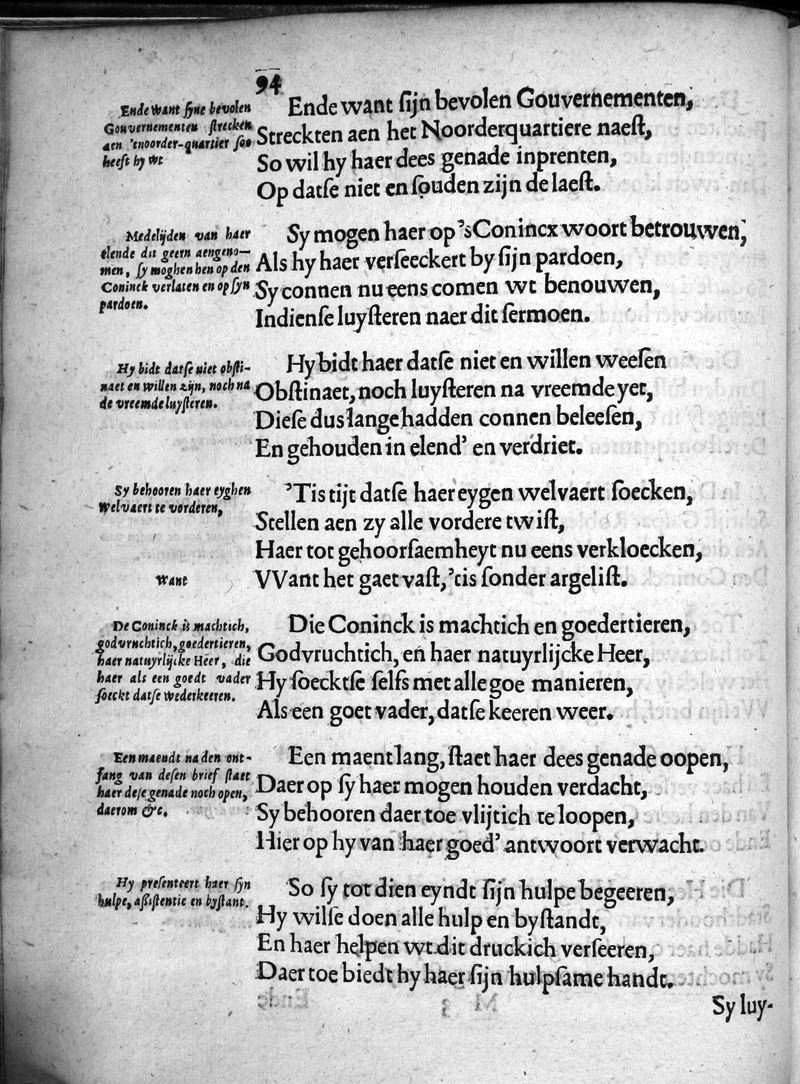 94
Ende want ſyne bevolen
Gouvernementen ſtrecken
aen 'tnoorder-quartier ſoo
heeft hy wt
Ende want ſijn bevolen Gouvernementen,
Streckten aen het Noorderquartiere naeſt,
So wil hy haer dees genade inprenten,
Op datſe niet en ſouden zijn de laeſt.
Medelijden van haer
elende dit geern aengeno-
men, ſy moghen hen op den
Coninck verlaten en op ſyn
pardoen.
Sy mogen haer op 'sConincx woort betrouwen,
Als hy haer verſeeckert by ſijn pardoen,
Sy connen nu eens comen wt benouwen,
Indienſe luyſteren naer dit ſermoen.
Hy bidt datſe niet obſti-
naet en willen zijn, noch na
de vreemde luyſteren.
Hy bidt haer datſe niet en willen weeſen
Obſtinaet, noch luyſteren na vreemde yet,
Dieſe dus lange hadden connen beleeſen,
En gehouden in elend' en verdriet.
Sy behooren haer eyghen
Welvaert te vorderen,
Want
'Tis tijt datſe haer eygen welvaert ſoecken,
Stellen aen zy alle vordere twiſt,
Haer tot gehoorſaemheyt nu eens verkloecken,
VVant het gaet vaſt, 'tis ſonder argeliſt.
De Coninck is machtich,
godvruchtich, goedertieren,
haer natuyrlijcke Heer, die
haer als een goedt vader
ſoeckt datſe wederkeeren.
Die Coninck is machtich en goedertieren,
Godvruchtich, eñ haer natuyrlijcke Heer,
Hy ſoecktſe ſelfs met alle goe manieren,
Als een goet vader, datſe keeren weer.
Een maendt na den ont-
fang van deſen brief ſtaet
haer deſe genade noch open,
daerom &c.
Een maent lang, ſtaet haer dees genade oopen,
Daer op ſy haer mogen houden verdacht,
Sy behooren daer toe vlijtich te loopen,
Hier op hy van haer goed' antwoort verwacht.
Hy preſenteert haer ſyn
hulpe, aſſiſtentie en byſtant.
So ſy tot dien eyndt ſijn hulpe begeeren,
Hy wilſe doen alle hulp en byſtandt,
En haer helpen wt dit druckich verſeeren,
Daer toe biedt hy haer ſijn hulpſame handt.
Sy luy-